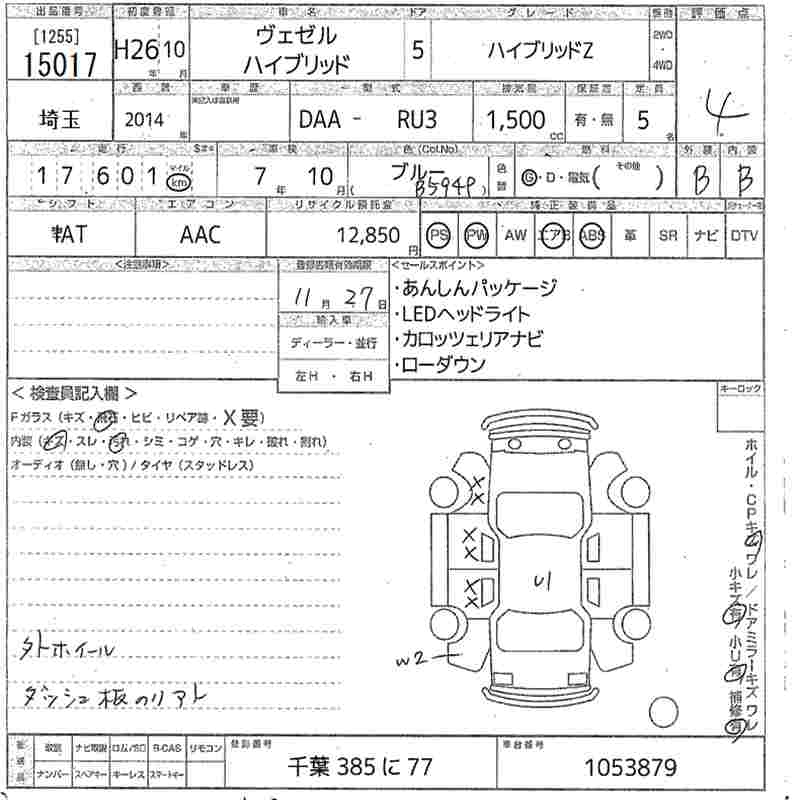 出品番号 初度登録 車名 ドア グレード 駆動 評価点
[1255]
15017 H26 10 ヴェゼル ハイブリッド 5 ハイブリッドZ 2WD・4WD 4
年 月
西暦 車歴 型式 排気量 保証書 定員
埼玉 2014 年 DAA - RU3 1,500 CC 有・無 5 名
走行 車検 色(Col.No) 燃料 外装 内装
17601 マイル km 7年 10月 ブルー (B594P) 色替 G・D・電気( その他 ) B B
シフト エアコン リサイクル預託金 純正装備品
AT AAC 12,850円 PS PW AW エアB ABS 革 SR ナビ DTV
<注意事項> 登録書類有効期限 <セールスポイント>
11月27日
・あんしんパッケージ
・LEDヘッドライト
・カロッツェリアナビ
・ローダウン
輸入車
ディーラー・並行
左H・右H
<検査員記入欄> キーロック
Fガラス(キズ・飛石・ヒビ・リペア跡・X要)
内装(キズ・スレ・汚れ・シミ・コゲ・穴・キレ・破れ・割れ)
オーディオ(無し・穴)/タイヤ(スタッドレス)
XX
XX
XX
U1
W2
ホイル・CPキズワレ/ドアミラーキズワレ
小キズ有 小U有 補修有
外ホイール
ダッシュ板のリアト
後送品 取説 ナビ取説 ロム/ホロ B-CAS リモコン 登録番号 車台番号
ナンバー スペアキー キーレス スマートキー 千葉 385 に 77 1053879